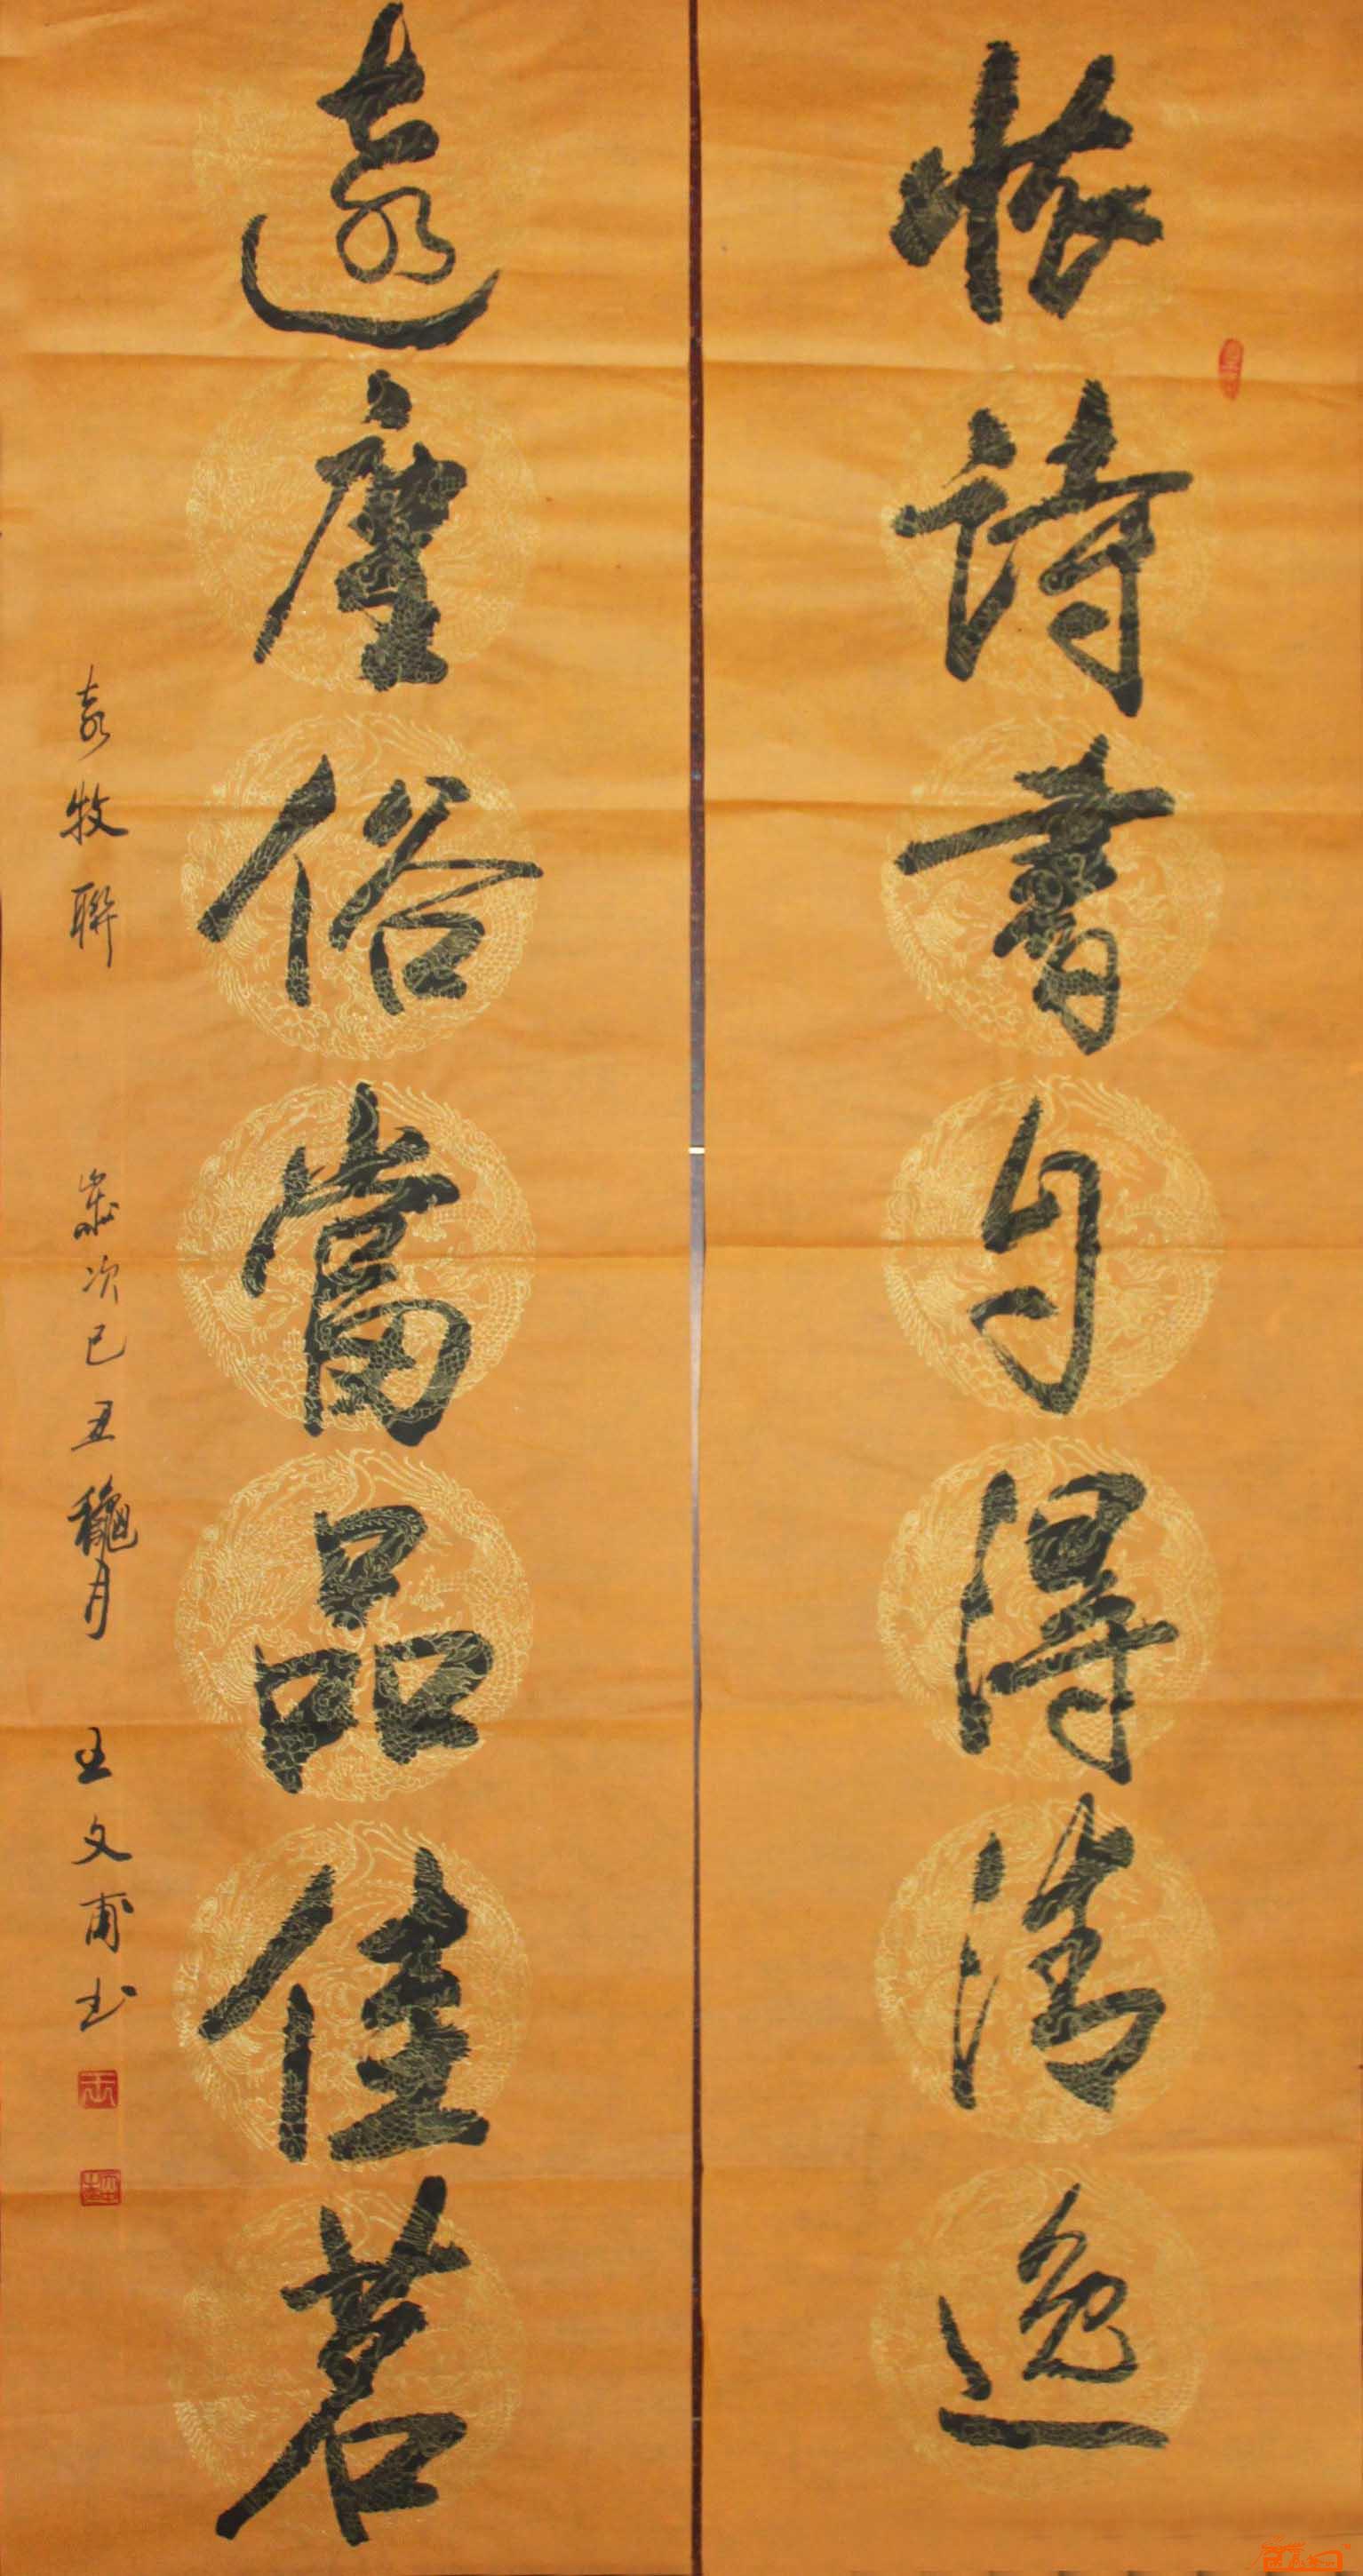 懷詩書自得清逸
遠塵俗當品佳茗
袁牧聯 歲次己丑龝月 王文甫书